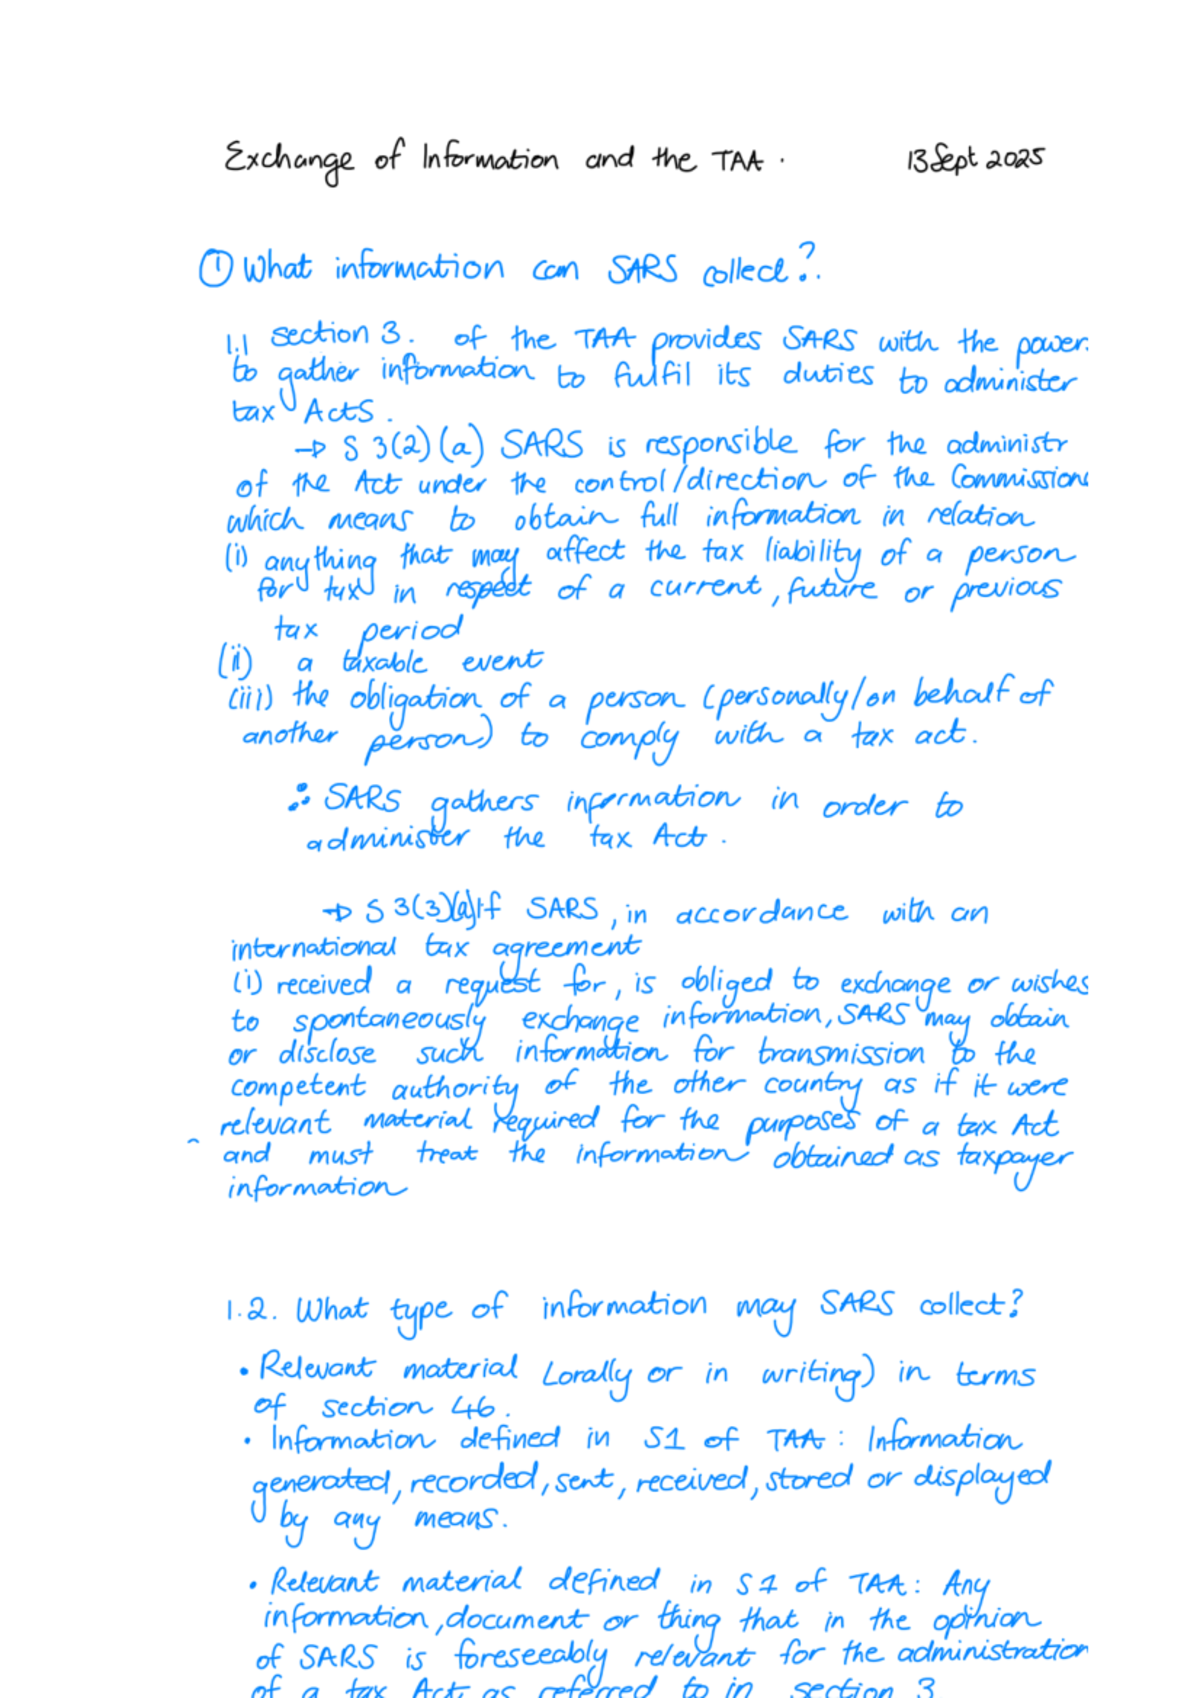 Exchange of Information and the TAA. 13 Sept 2025
① What information can SARS collect?.
1.1 section 3. of the TAA provides SARS with the power.
to gather information to fulfil its duties to administer
tax Acts.
→ S 3(2)(a) SARS is responsible for the administr
of the Act under the control/direction of the Commission
which means to obtain full information in relation
(i) anything that may affect the tax liability of a person
for tax in respect of a current, future or previous
tax period
(ii) a taxable event
(iii) the obligation of a person (personally/on behalf of
another person) to comply with a tax act.
∴ SARS gathers information in order to
administer the tax Act.
→ S 3(3)(a) If SARS, in accordance with an
international tax agreement
(i) received a request for, is obliged to exchange or wishes
to spontaneously exchange information, SARS may obtain
or disclose such information for transmission to the
competent authority of the other country as if it were
relevant material required for the purposes of a tax Act
and must treat the information obtained as taxpayer
information
1.2. What type of information may SARS collect?
• Relevant material (orally or in writing) in terms
of section 46.
• Information defined in S1 of TAA: Information
generated, recorded, sent, received, stored or displayed
by any means.
• Relevant material defined in S1 of TAA: Any
information, document or thing that in the opinion
of SARS is foreseeably relevant for the administration
of a tax Act as referred to in section 3